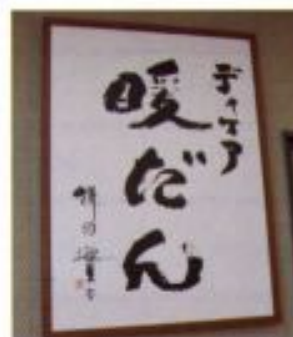 デイケア
暖だん